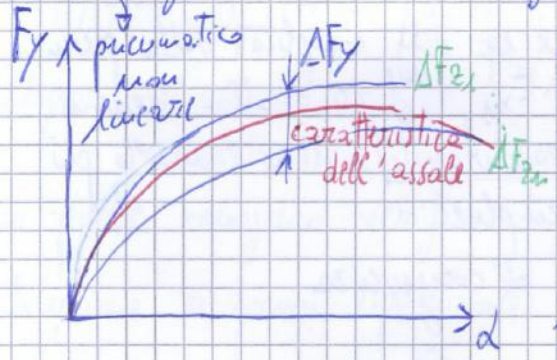 Fy
pneumatico
non
lineare
ΔFy
ΔFz1
caratteristica
dell'assale
ΔFzn
α